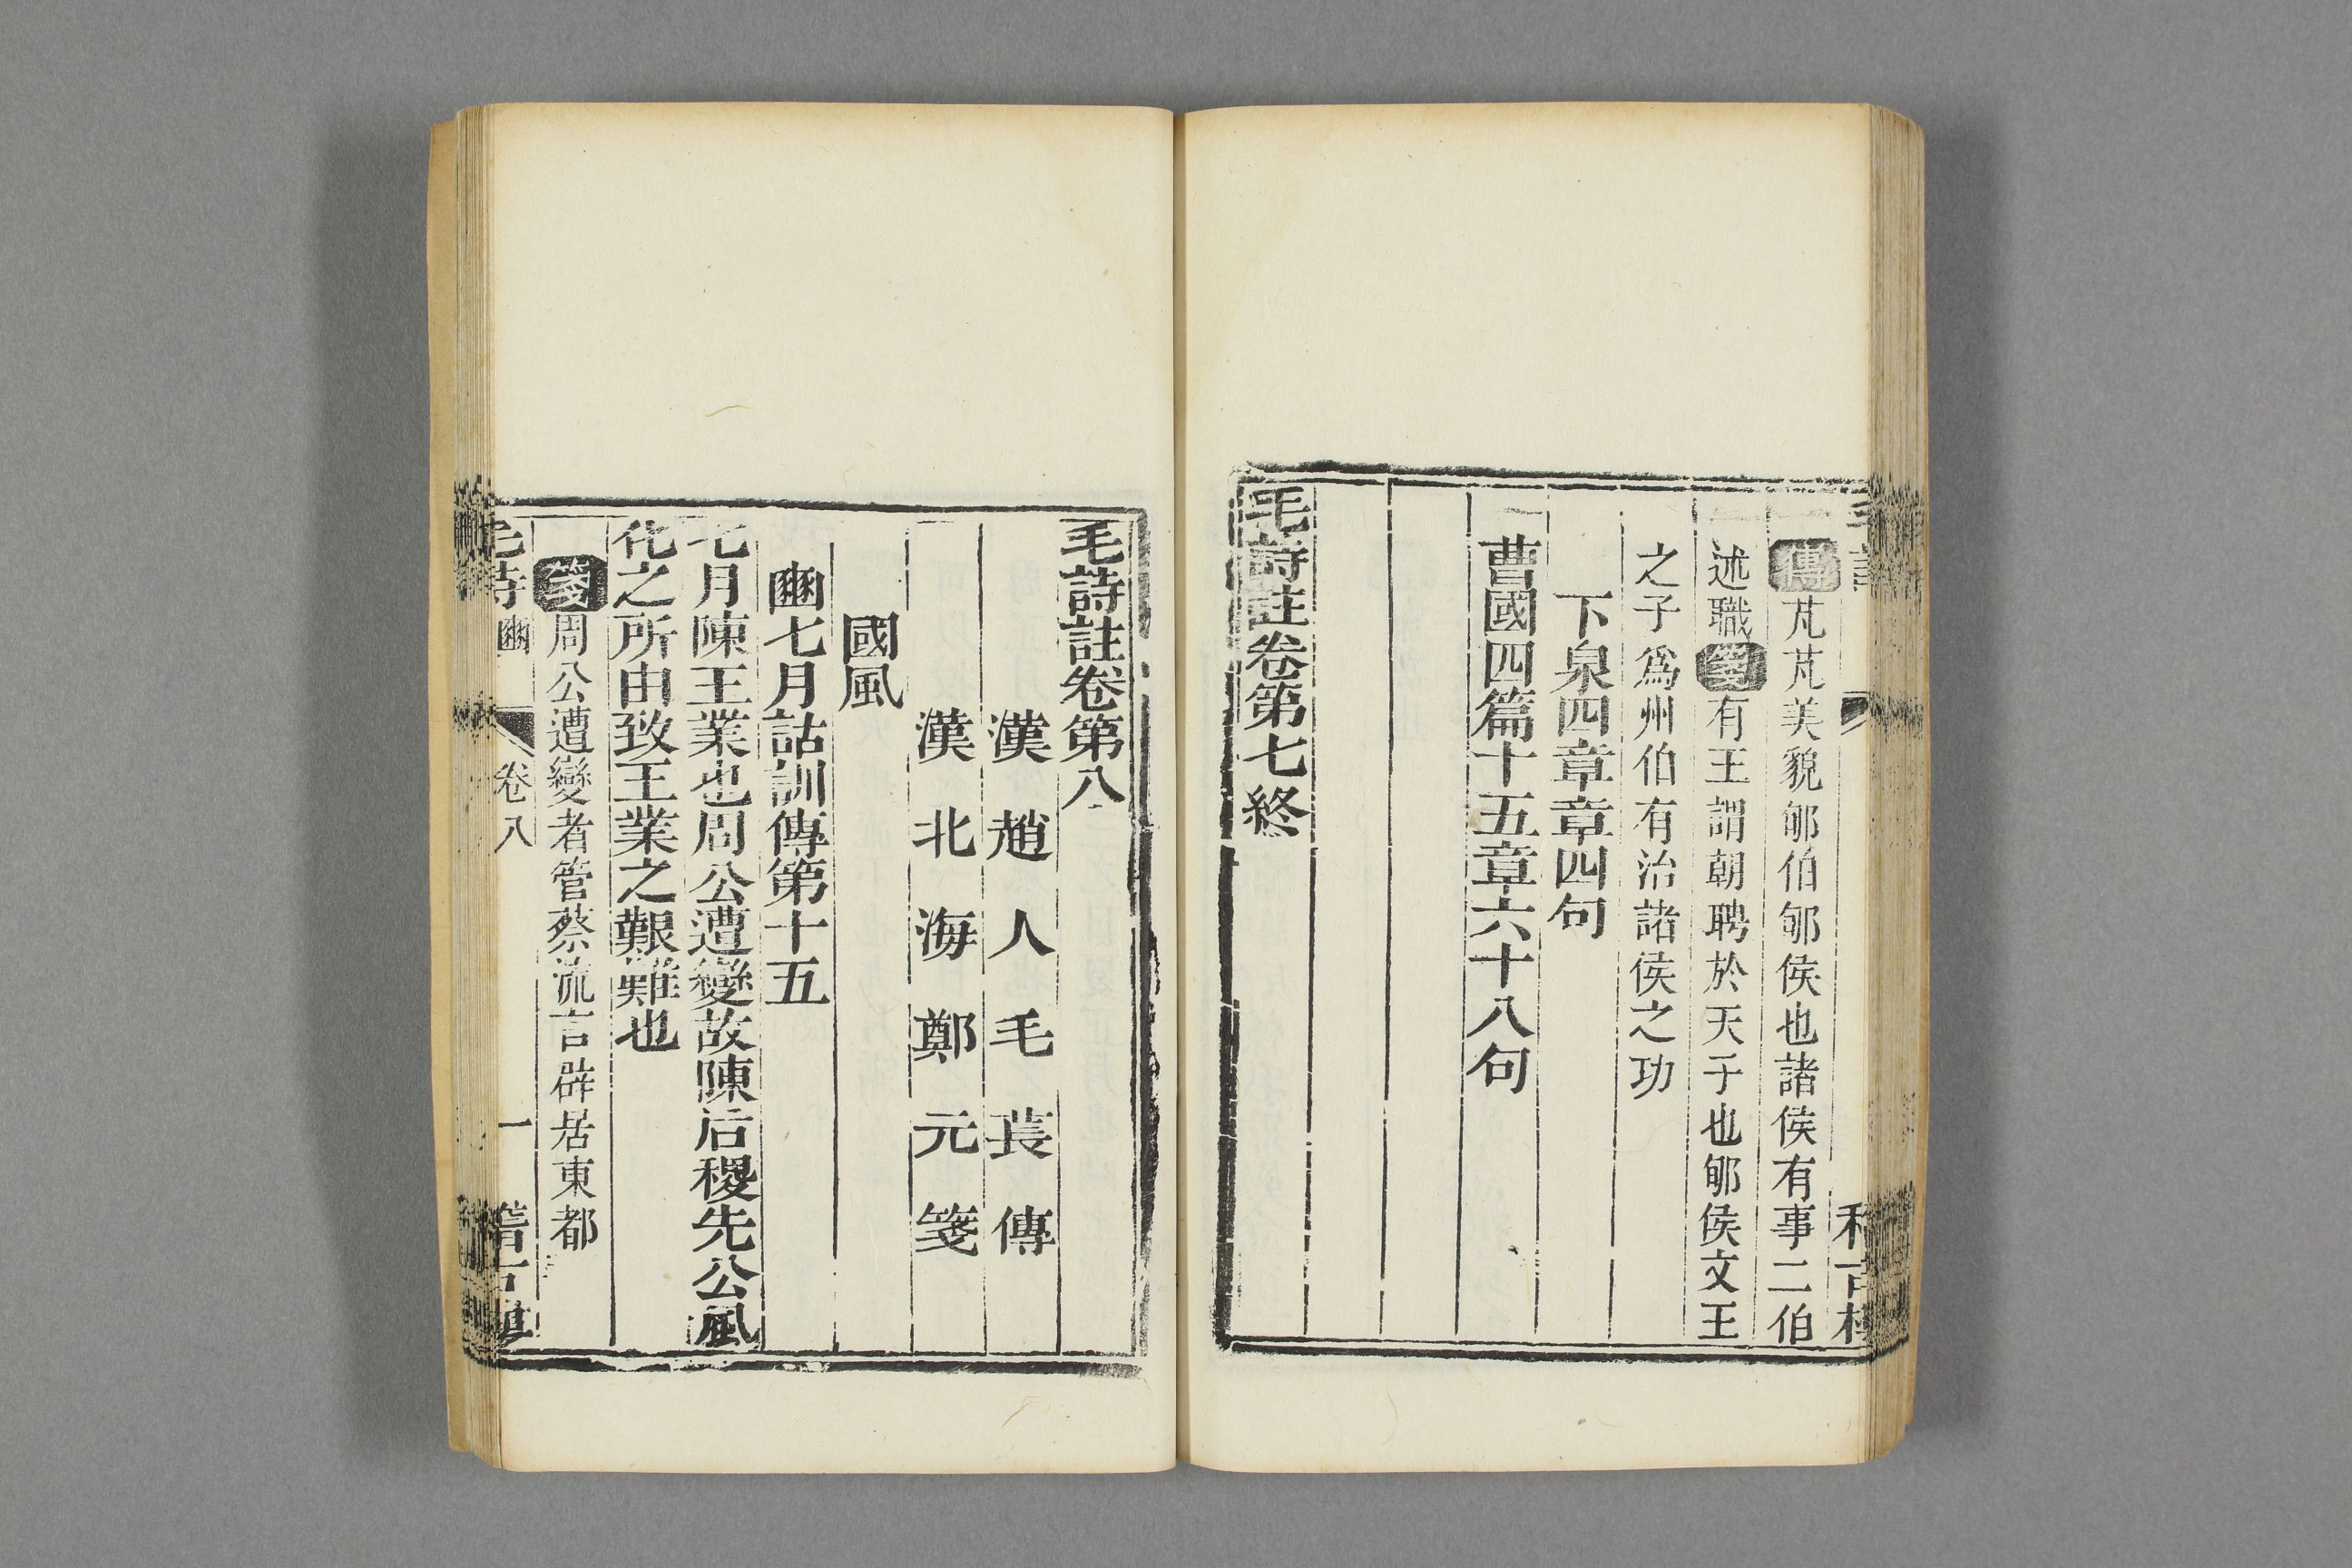 傳芃芃美貌郇伯郇侯也諸侯有事二伯
述職箋有王謂朝聘於天子也郇侯文王
之子爲州伯有治諸侯之功
下泉四章章四句
曹國四篇十五章六十八句
毛詩註卷第七終
毛詩註卷第八
漢趙人毛萇傳
漢北海鄭元箋
國風
豳七月詁訓傳第十五
七月陳王業也周公遭變故陳后稷先公風
化之所由致王業之艱難也
箋周公遭變者管蔡流言辟居東都
毛詩豳 卷八 一